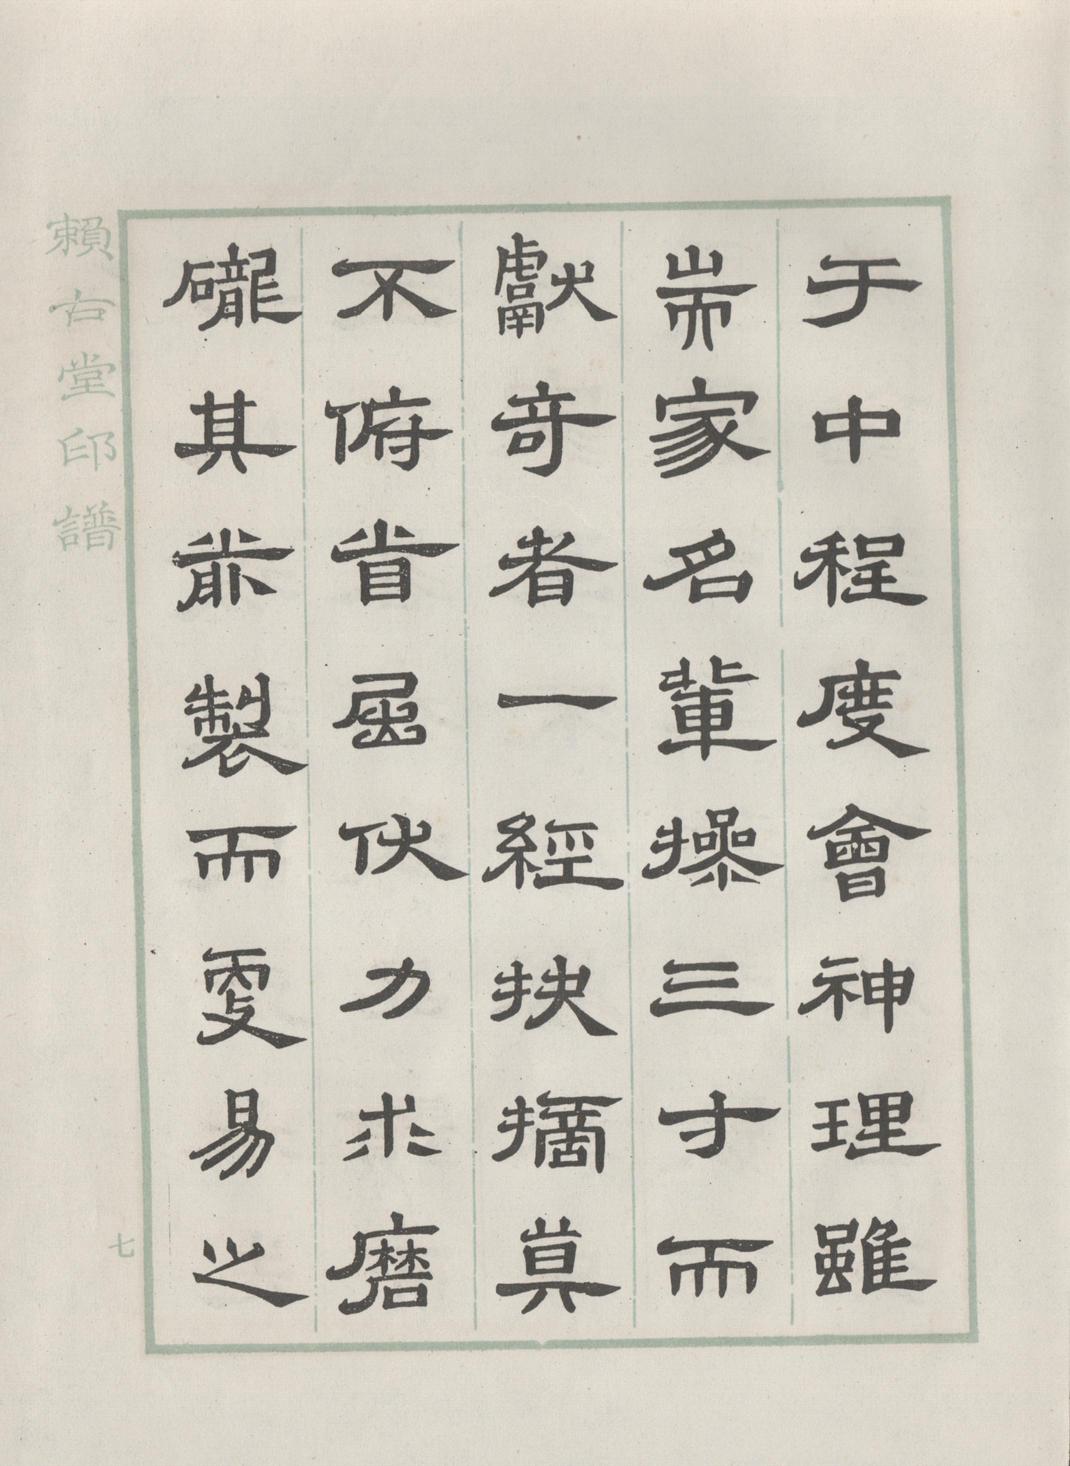 于中程度會神理雖
耑家名輩操三寸而
獻奇者一經抉摘莫
不俯首屈伏力求磨
礲其前製而更易之
賴古堂印譜
七